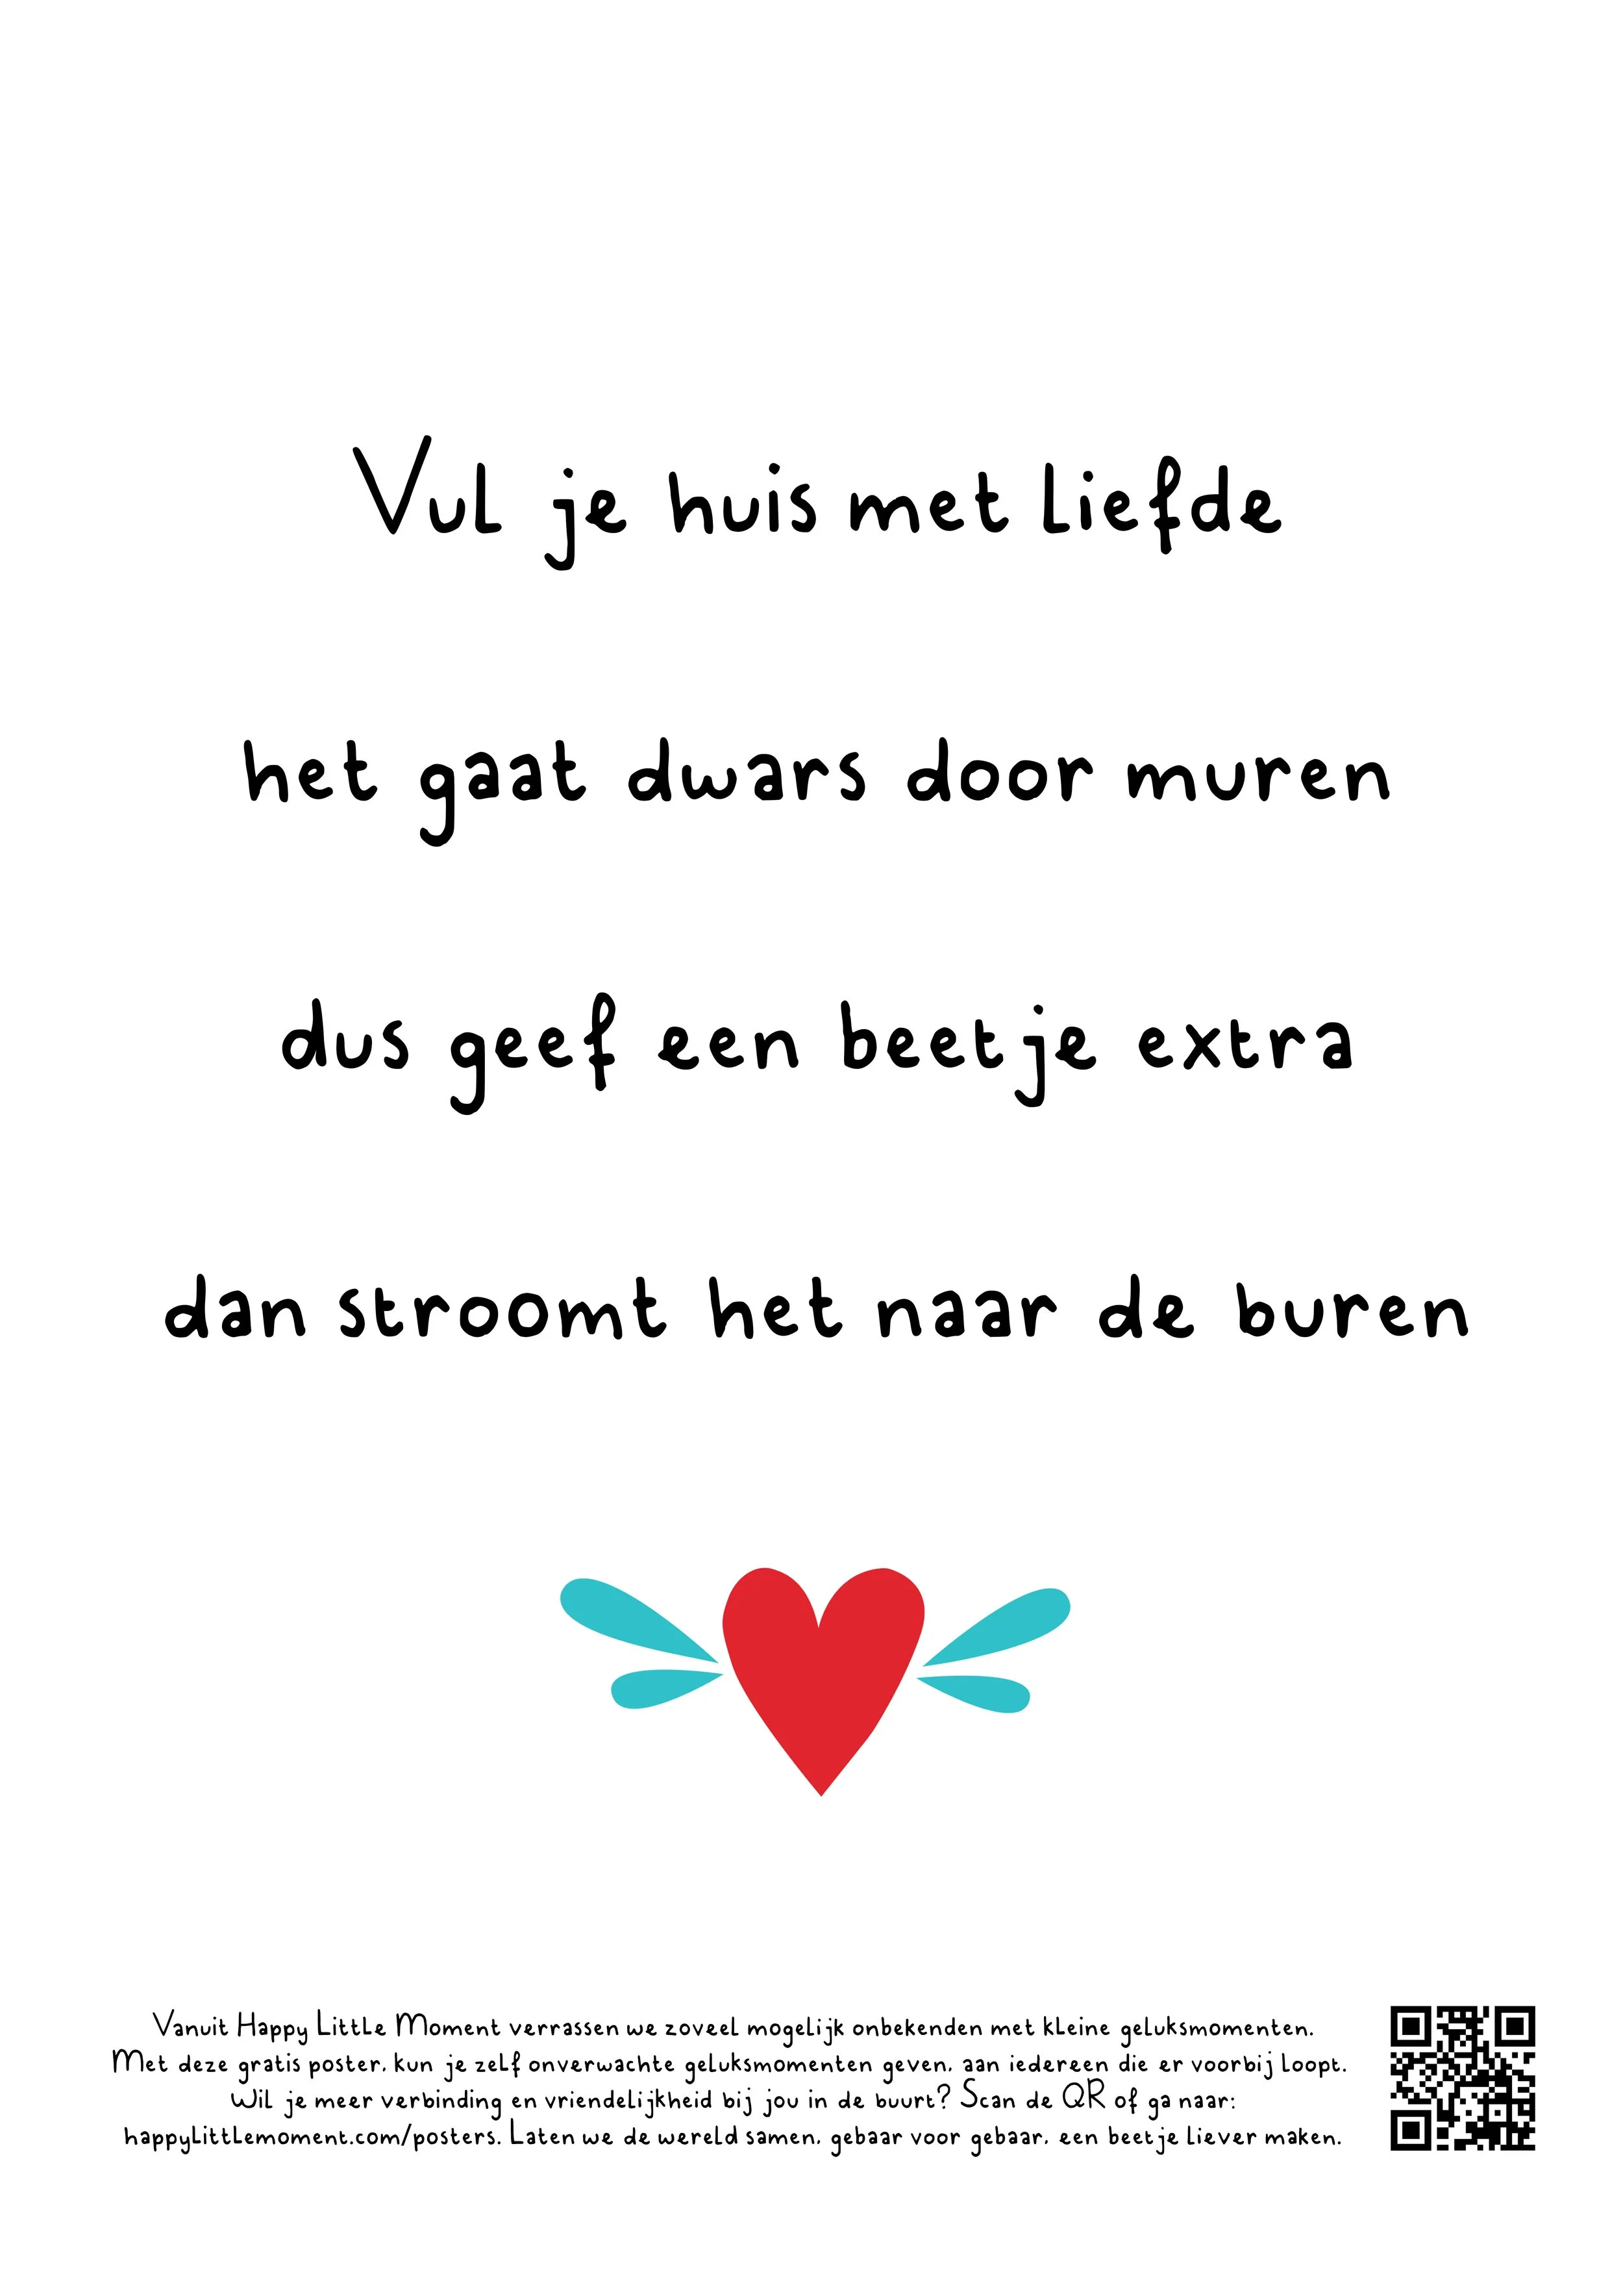 Vul je huis met liefde
het gaat dwars door muren
dus geef een beetje extra
dan stroomt het naar de buren
Vanuit Happy Little Moment verrassen we zoveel mogelijk onbekenden met kleine geluksmomenten.
Met deze gratis poster, kun je zelf onverwachte geluksmomenten geven, aan iedereen die er voorbij loopt.
Wil je meer verbinding en vriendelijkheid bij jou in de buurt? Scan de QR of ga naar:
happylittlemoment.com/posters. Laten we de wereld samen, gebaar voor gebaar, een beetje liever maken.